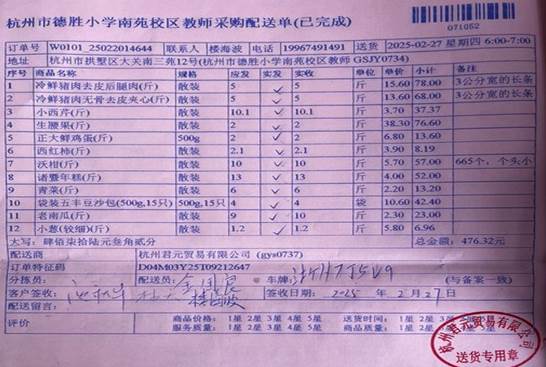 杭州市德胜小学南苑校区教师采购配送单(已完成)
071052
订单号 W0101_25022014644 联系人 楼海波 电话 19967491491 送货 2025-02-27 星期四 6:00-7:00
地址 杭州市拱墅区大关南三苑12号(杭州市德胜小学南苑校区教师 GSJY0734)
序号 商品名称 规格 应发 实发 实收 单位 单价 小计 备注
1 冷鲜猪肉去皮后腿肉(斤) 散装 5 ✓ 5 斤 15.60 78.00 3公分宽的长条
2 冷鲜猪肉无骨去皮夹心(斤) 散装 5 ✓ 5 斤 13.60 68.00 3公分宽的长条
3 小西芹(斤) 散装 10.1 ✓ 10.1 斤 3.70 37.37
4 生腰果(斤) 散装 2 ✓ 2 斤 38.30 76.60
5 正大鲜鸡蛋(斤) 500g 2 ✓ 2 斤 6.80 13.60
6 西红柿(斤) 散装 2.1 ✓ 2.1 斤 3.90 8.19
7 沃柑(斤) 散装 10 ✓ 10 斤 5.70 57.00 665个,个头小
8 诸暨年糕(斤) 散装 13 ✓ 13 斤 4.00 52.00
9 青菜(斤) 散装 6 ✓ 6 斤 2.20 13.20
10 袋装五丰豆沙包(500g,15只) 500g,15只 4 ✓ 4 袋 10.60 42.40
11 老南瓜(斤) 散装 10 ✓ 10 斤 2.30 23.00
12 小葱(较细)(斤) 散装 1.2 ✓ 1.2 斤 5.80 6.96
大写:肆佰柒拾陆元叁角贰分 总金额:476.32元
配送商 杭州君元贸易有限公司 (gys0737)
订单特征码 D04M03Y25T09212647
分拣员: 配送员: 车牌: (与备案一致)
客户签收: 楼海波 签收日期: 2025 年 2 月 27 日
配送留言:
评价 商品价格: 1星 2星 3星 4星 5星 送货时间: 1星 2星 3星 4星 5星
服务质量: 1星 2星 3星 4星 5星 商品质量: 1星 2星 3星 4星 5星
杭州君元贸易有限公司
送货专用章